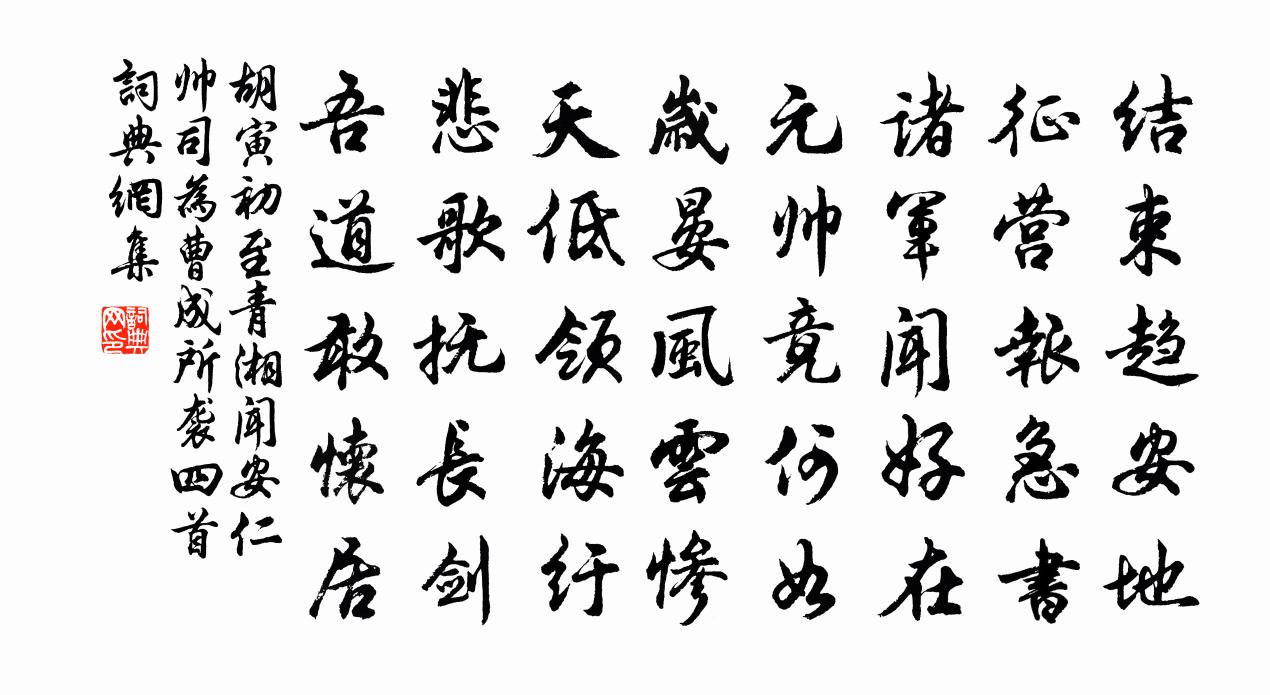 结束趋安地
征营報急書
诸軍闻好在
元帅竟何如
歲晏風雲惨
天低领海纡
悲歌抚長剑
吾道敢懷居
胡寅初至青湘闻安仁
帅司為曹成所袭四首
詞典網集
詞典网印